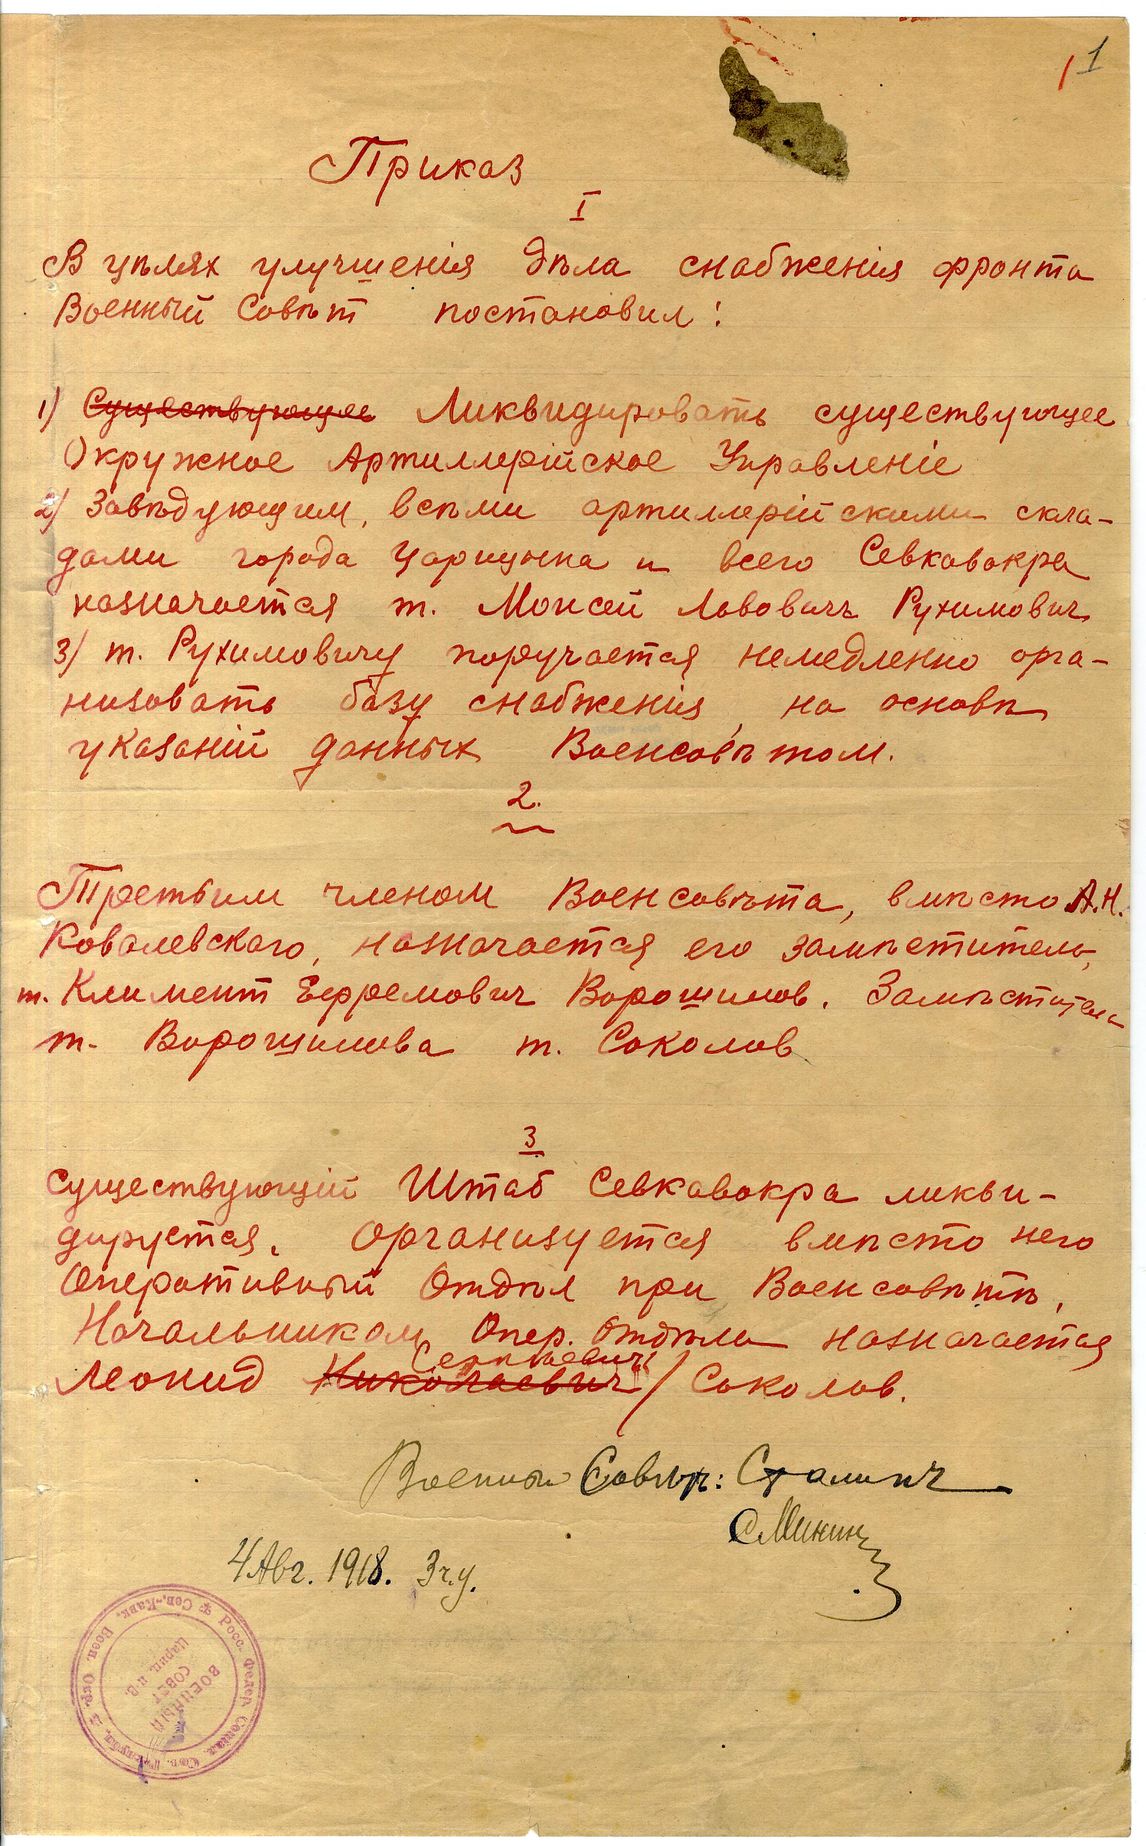 1
Приказ
I
В цѣлях улучшенія дѣла снабженія фронта
Военный Совѣт постановил:
1) Существующее Ликвидировать существующее
Окружное Артиллерійское Управленіе
2) Завѣдующим, всѣми артиллерійскими скла-
дами города Царицына и всего Севкавокра
назначается т. Моисей Львовичъ Рухимович
3) т. Рухимовичу поручается немедленно орга-
низовать базу снабженія, на основѣ
указаній данных Военсовѣтом.
2.
Третьим членом Военсовѣта, вмѣсто А.Н.
Ковалевского, назначается его замѣститель,
т. Климент Ефремович Ворошилов. Замѣститель
т. Ворошилова т. Соколов
3
Существующій Штаб Севкавокра ликви-
дируется. Организуется вмѣсто него
Оперативный Отдѣл при Военсовѣтѣ,
Начальником Опер. Отдѣла назначается
Сергѣевичъ
Леонид Николаевич / Соколов.
Военный Совѣт: Сталинъ
С Минин
4 Авг. 1918. 3 ч. у.
Росс. Федер. Соціал. Сов.
Сев.-Кавк. Воен. Окр.
ВОЕННЫЙ
СОВЕТ